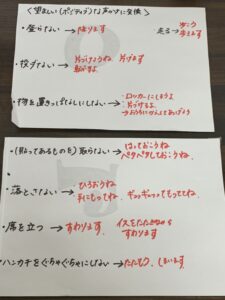 〈望ましい(ポジティブ)な声かけに変換〉
・登らない→降ります 走る→歩こう
歩きます
・投げない→片づけようね 片づけます
転がすよ
・物を置きっぱなしにしない→・ロッカーにしまおう
・片づけるよ
・おうちにかえしてあげよう
・(貼ってあるものを)取らない→はっておこうね
ペタペタしておこうね。
・落とさない→ひろおうね
手にもっててね。ギュッギュッてもっててね。
・席を立つ→すわります イスをたたせながら
すわります
・ハンカチをぐちゃぐちゃにしない→たたもう、しまいます。